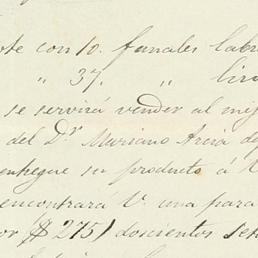 ote con 10. fanales labr
" 37. " lin
se servirá vender al mej
del Dr. Mariano Arcia de
entregue su producto á
encontrará V. una para
or $275) doscientos set